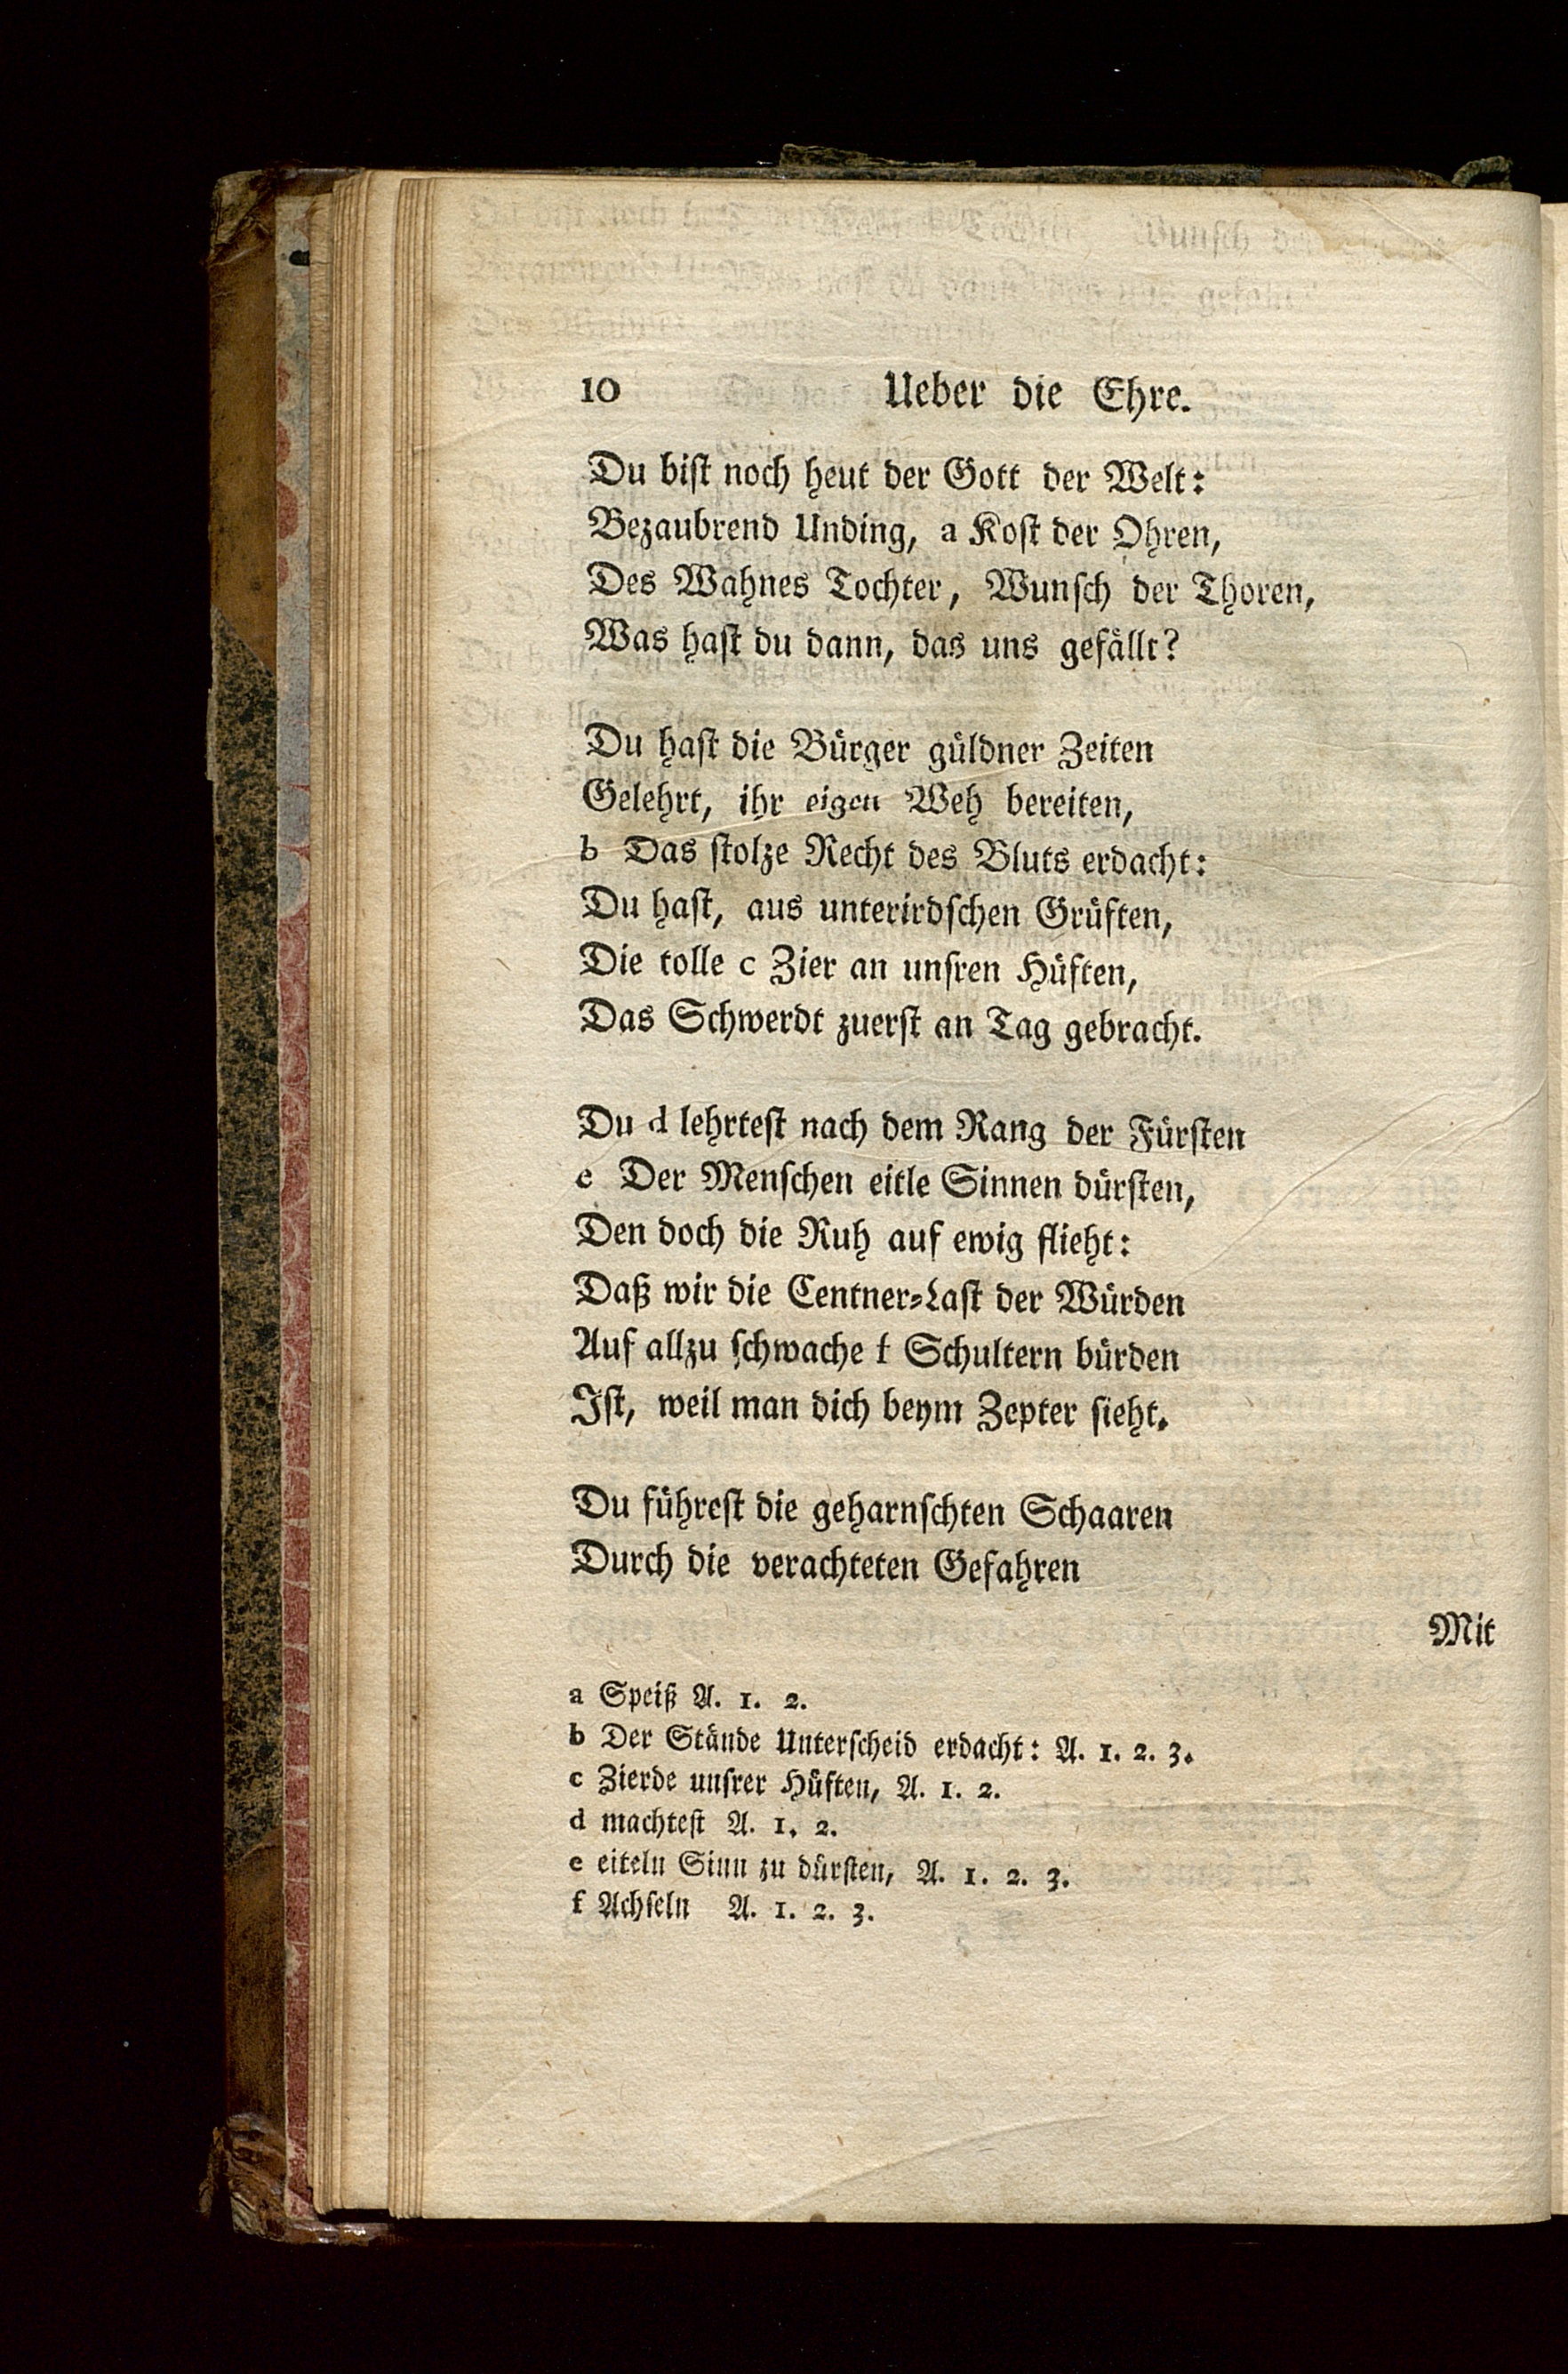 10 Ueber die Ehre.
Du bist noch heut der Gott der Welt:
Bezaubrend Unding, a Kost der Ohren,
Des Wahnes Tochter, Wunsch der Thoren,
Was hast du dann, das uns gefällt?
Du hast die Bürger güldner Zeiten
Gelehrt, ihr eigen Weh bereiten,
b Das stolze Recht des Bluts erdacht:
Du hast, aus unterirdschen Grüften,
Die tolle c Zier an unsren Hüften,
Das Schwerdt zuerst an Tag gebracht.
Du d lehrtest nach dem Rang der Fürsten
e Der Menschen eitle Sinnen dürsten,
Den doch die Ruh auf ewig flieht:
Daß wir die Centner-Last der Würden
Auf allzu schwache f Schultern bürden
Ist, weil man dich beym Zepter sieht.
Du führest die geharnschten Schaaren
Durch die verachteten Gefahren
Mit
a Speiß A. 1. 2.
b Der Stände Unterscheid erdacht: A. 1. 2. 3.
c Zierde unsrer Hüften, A. 1. 2.
d machtest A. 1. 2.
e eiteln Sinn zu dürsten, A. 1. 2. 3.
f Achseln A. 1. 2. 3.